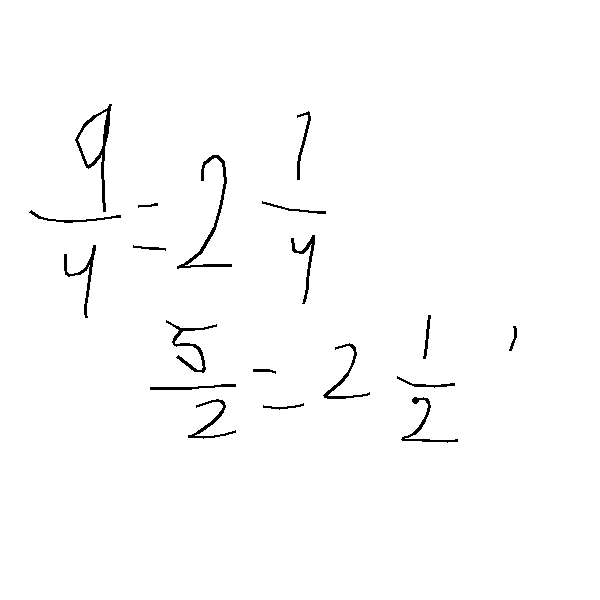 9/4 = 2 1/4
5/2 = 2 1/2 ,